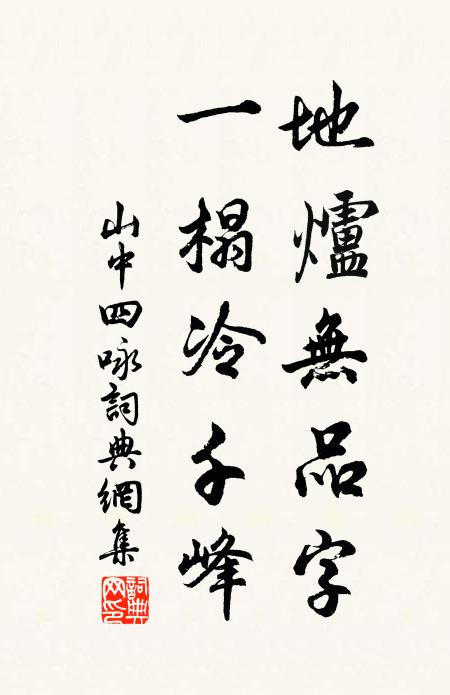 地爐無品字
一榻冷千峰
山中四咏詞典網集
詞典網印